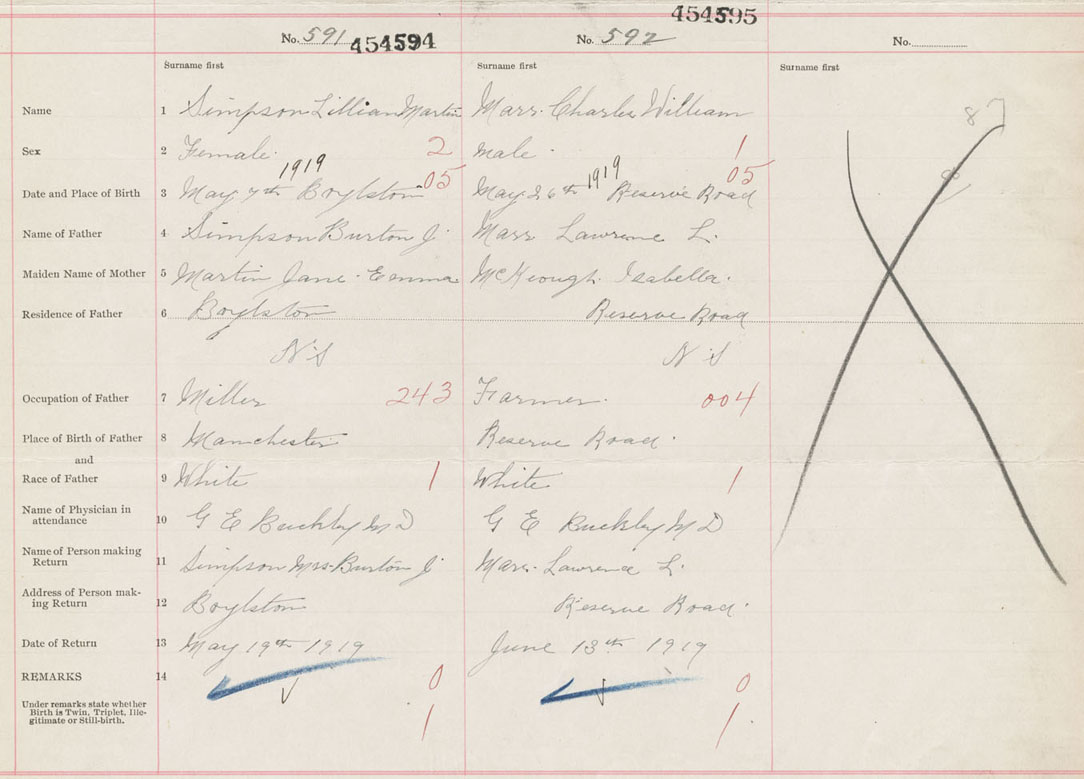 454595
No. 591 454594 No. 592 No.
Surname first Surname first Surname first
Name 1 Simpson Lillian Martin Marr. Charles William 87
Sex 2 Female. 2 male. 1
1919 05 1919 05
Date and Place of Birth 3 May 7th Boylston May 26th Reserve Road
Name of Father 4 Simpson Burton J. Marr Lawrence L.
Maiden Name of Mother 5 Martin Jane. Emma McKeough. Isabella.
Residence of Father 6 Boylston Reserve Road
NS NS
Occupation of Father 7 Miller 243 Farmer. 004
Place of Birth of Father 8 Manchester Reserve Road.
and
Race of Father 9 White 1 White 1
Name of Physician in
attendance 10 G E Buckley MD G E Buckley MD
Name of Person making
Return 11 Simpson Mrs. Burton J. Marr. Lawrence L.
Address of Person mak-
ing Return 12 Boylston Reserve Road.
Date of Return 13 May 19th 1919 June 13th 1919
REMARKS 14 0 0
Under remarks state whether
Birth is Twin, Triplet, Ille-
gitimate or Still-birth. 1 1